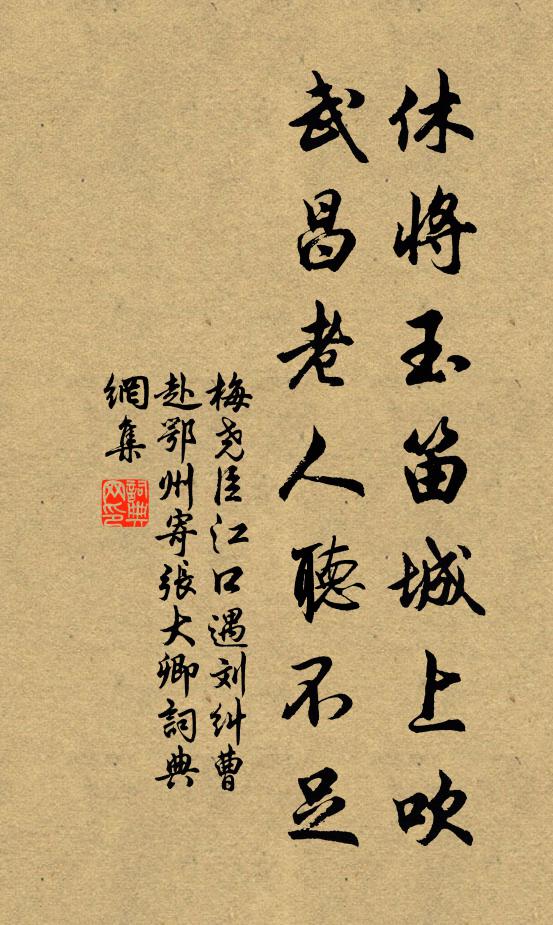 休將玉笛城上吹
武昌老人聽不足
梅尧臣江口遇刘纠曹
赴鄂州寄張大卿詞典
網集
詞典
网印